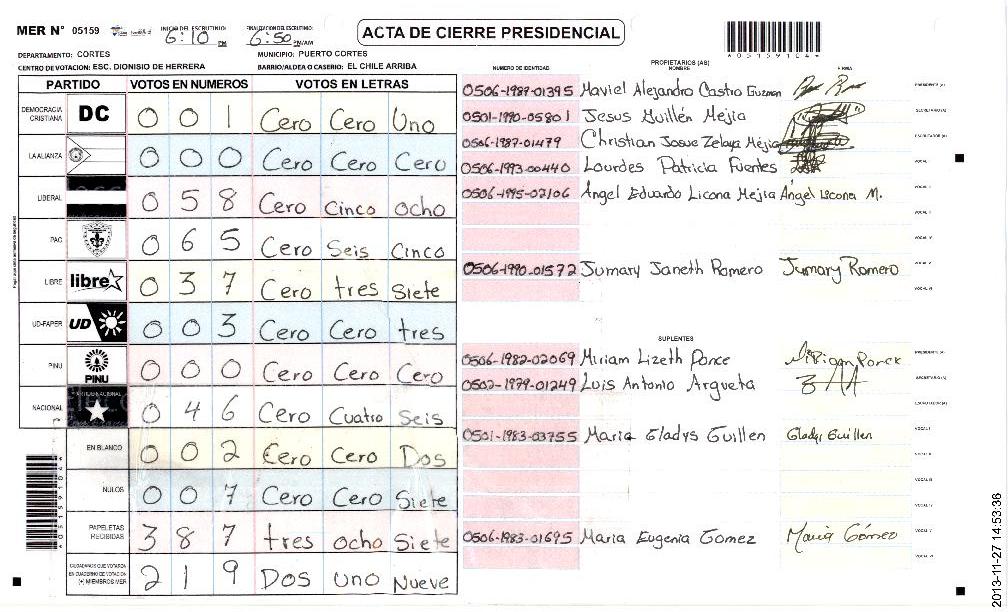 MER N° 05159 INICIO DEL ESCRUTINIO: 6:10 PM FINALIZACION DEL ESCRUTINIO: 6:50 PM/AM ACTA DE CIERRE PRESIDENCIAL
*05159104*
DEPARTAMENTO: CORTES MUNICIPIO: PUERTO CORTES
CENTRO DE VOTACION: ESC. DIONISIO DE HERRERA BARRIO/ALDEA O CASERIO: EL CHILE ARRIBA
PARTIDO VOTOS EN NUMEROS VOTOS EN LETRAS
DEMOCRACIA CRISTIANA DC 0 0 1 Cero Cero Uno
LA ALIANZA 0 0 0 Cero Cero Cero
LIBERAL 0 5 8 Cero Cinco ocho
PAC 0 6 5 Cero Seis Cinco
LIBRE libre 0 3 7 Cero tres Siete
UD-FAPER UD 0 0 3 Cero Cero tres
PINU PINU 0 0 0 Cero Cero Cero
NACIONAL 0 4 6 Cero Cuatro Seis
EN BLANCO 0 0 2 Cero Cero Dos
NULOS 0 0 7 Cero Cero Siete
PAPELETAS RECIBIDAS 3 8 7 tres ocho Siete
CIUDADANOS QUE VOTARON EN CUADERNO DE VOTACION (+) MIEMBROS MER 2 1 9 Dos uno Nueve
*05159104*
PROPIETARIOS (AS)
NUMERO DE IDENTIDAD NOMBRE FIRMA
0506-1987-01395 Maviel Alejandro Castro Guzman PRESIDENTE (A)
0501-1990-05801 Jesus Guillén Mejia SECRETARIO (A)
0506-1987-01479 Christian Josue Zelaya Mejia ESCRUTADOR (A)
0506-1993-00440 Lourdes Patricia Fuentes VOCAL I
0506-1995-02106 Ángel Eduardo Licona Mejia Ángel Licona M.
0506-1990-01572 Jumary Janeth Romero Jumary Romero
SUPLENTES
0506-1982-02069 Miriam Lizeth Ponce Miriam Ponce PRESIDENTE (A)
0502-1979-01249 Luis Antonio Argueta SECRETARIO (A)
ESCRUTADOR (A)
0501-1983-03755 Maria Gladys Guillen Gladys Guillen VOCAL I
0506-1983-01695 Maria Eugenia Gomez Maria Gómez
2013-11-27 14:53:36